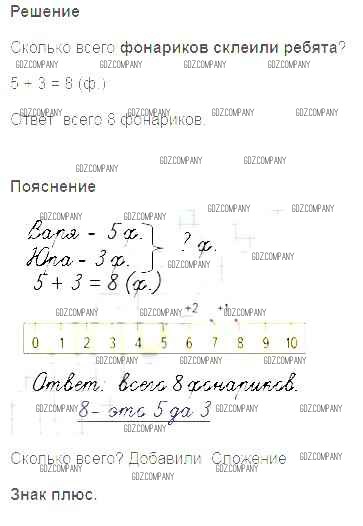 Решение
Сколько всего фонариков склеили ребята?
GDZCOMPANY GDZCOMPANY GDZCOMPANY GDZCOMPANY
5 + 3 = 8 (ф.)
GDZCOMPANY GDZCOMPANY GDZCOMPANY GDZCOMPANY
Ответ всего 8 фонариков.
GDZCOMPANY GDZCOMPANY GDZCOMPANY
Пояснение
GDZCOMPANY GDZCOMPANY GDZCOMPANY
Варя - 5 ф.
? ф.
Юра - 3 ф.
GDZCOMPANY
5 + 3 = 8 (ф.)
GDZCOMPANY GDZCOMPANY GDZCOMPANY
+2 +1
0 1 2 3 4 5 6 7 8 9 10
GDZCOMPANY GDZCOMPANY GDZCOMPANY
Ответ: всего 8 фонариков.
GDZCOMPANY GDZCOMPANY GDZCOMPANY GDZCOMPANY
8 - это 5 да 3
GDZCOMPANY
Сколько всего? Добавили Сложение
GDZCOMPANY GDZCOMPANY GDZCOMPANY GDZCOMPANY
Знак плюс.